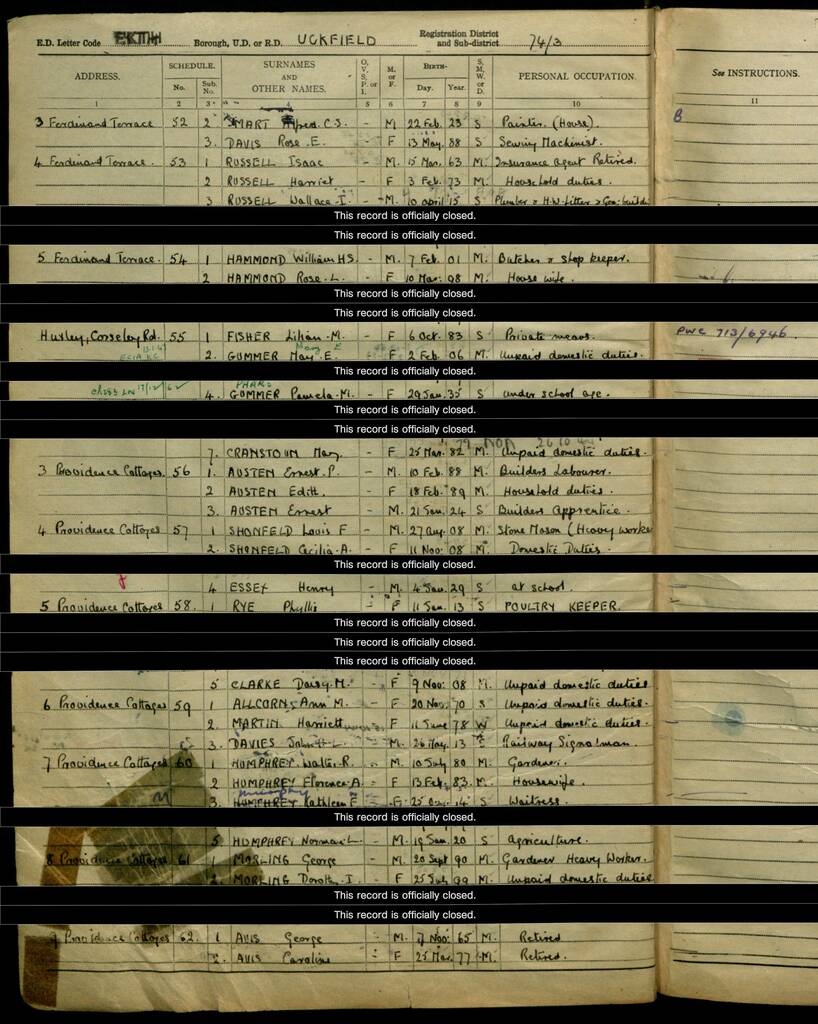 E.D. Letter Code Borough, U.D. or R.D. UCKFIELD Registration District and Sub-district 74/3
ADDRESS. SCHEDULE. No. Sub. No. SURNAMES AND OTHER NAMES. O. V. S. P. or I. M. or F. BIRTH— Day. Year. S. M. W. or D. PERSONAL OCCUPATION. See INSTRUCTIONS.
1 2 3 4 5 6 7 8 9 10 11
3 Ferdinand Terrace 52 2 SMART Alfred C.S. - M 22 Feb. 23 S Painter (House). B
3. DAVIS Rose. E. F 13 May. 88 S Sewing Machinist.
4 Ferdinand Terrace. 53 1 RUSSELL Isaac - M 15 Mar. 63 M. Insurance agent Retired.
2 RUSSELL Harriet - F 3 Feb. 73 M. Household duties.
3 RUSSELL Wallace. I. - M. 10 April 15 S Plumber & H.W. Fitter &
This record is officially closed.
This record is officially closed.
5 Ferdinand Terrace. 54 1 HAMMOND William H S. - M. 7 Feb. 01 M. Butcher & shop keeper.
2 HAMMOND Rose. L. - F 10 Mar. 08 M. House wife.
This record is officially closed.
This record is officially closed.
Huxley, Corseley Rd. 55 1 FISHER Lilian. M. - F 6 Oct. 83 S Private means. PWC 713/6946.
Mary E
2. GUMMER May. E. F 2 Feb. 06 M. Unpaid domestic duties.
This record is officially closed.
4. GUMMER Pamela. M. - F 29 Jan. 35 S under school age.
This record is officially closed.
This record is officially closed.
7. CRANSTOUN May - F 25 Mar. 82 M. Unpaid domestic duties.
3 Providence Cottages. 56 1. AUSTEN Ernest. P. - M. 10 Feb. 88 M. Builders Labourer.
2 AUSTEN Edith. - F 18 Feb. 89 M. Household duties.
3. AUSTEN Ernest - M. 21 Jan. 24 S Builders apprentice.
4 Providence Cottages 57 1 SHONFELD Louis F - M. 27 Aug. 08 M. Stone Mason (Heavy Worke
2. SHONFELD Cecilia. A. - F 11 Nov: 08 M. Domestic Duties.
This record is officially closed.
4 ESSEX Henry - M. 4 Jan. 29 S at school.
5 Providence Cottages 58. 1 RYE Phyllis - F 11 Jan. 13 S POULTRY KEEPER.
This record is officially closed.
This record is officially closed.
This record is officially closed.
5 CLARKE Daisy. M. - F 9 Nov: 08 M. Unpaid domestic duties
6 Providence Cottages 59 1 ALLCORN, Ann M. - F 20 Nov. 70 S Unpaid domestic duties.
2. MARTIN Harriett - F 11 June 78 W Unpaid domestic duties.
3. DAVIES - M. 26 May. 13 S Railway Signalman.
7 Providence Cottages 60 1 HUMPHREY Walter. R. - M. 10 July 80 M. Gardener.
2 HUMPHREY Florence. A. - F 13 Feb. 83. M. Housewife.
Murphy
3. HUMPHREY Kathleen F - F. 25 14 S Waitress.
This record is officially closed.
5 HUMPHREY Norman. L. - M. 19 Jan. 20 S Agriculture.
8 Providence Cottages 61 1 MORLING George - M. 20 Sept 90 M. Gardener Heavy Worker.
2. MORLING Dorothy. I. - F 25 July 99 M. Unpaid domestic duties
This record is officially closed.
This record is officially closed.
9 Providence Cottages 62. 1 AVIS George - M. 17 Nov: 65 M. Retired
2. AVIS Caroline - F 25 Mar. 77 M. Retired.